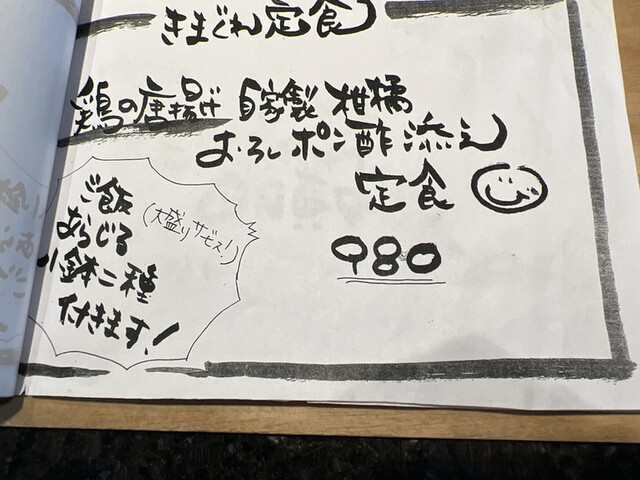 きまぐれ定食
鶏の唐揚げ 自家製 柑橘
おろしポン酢添え
定食
980
ご飯
(大盛りサービス!)
あらじる
小鉢二種
付きます!